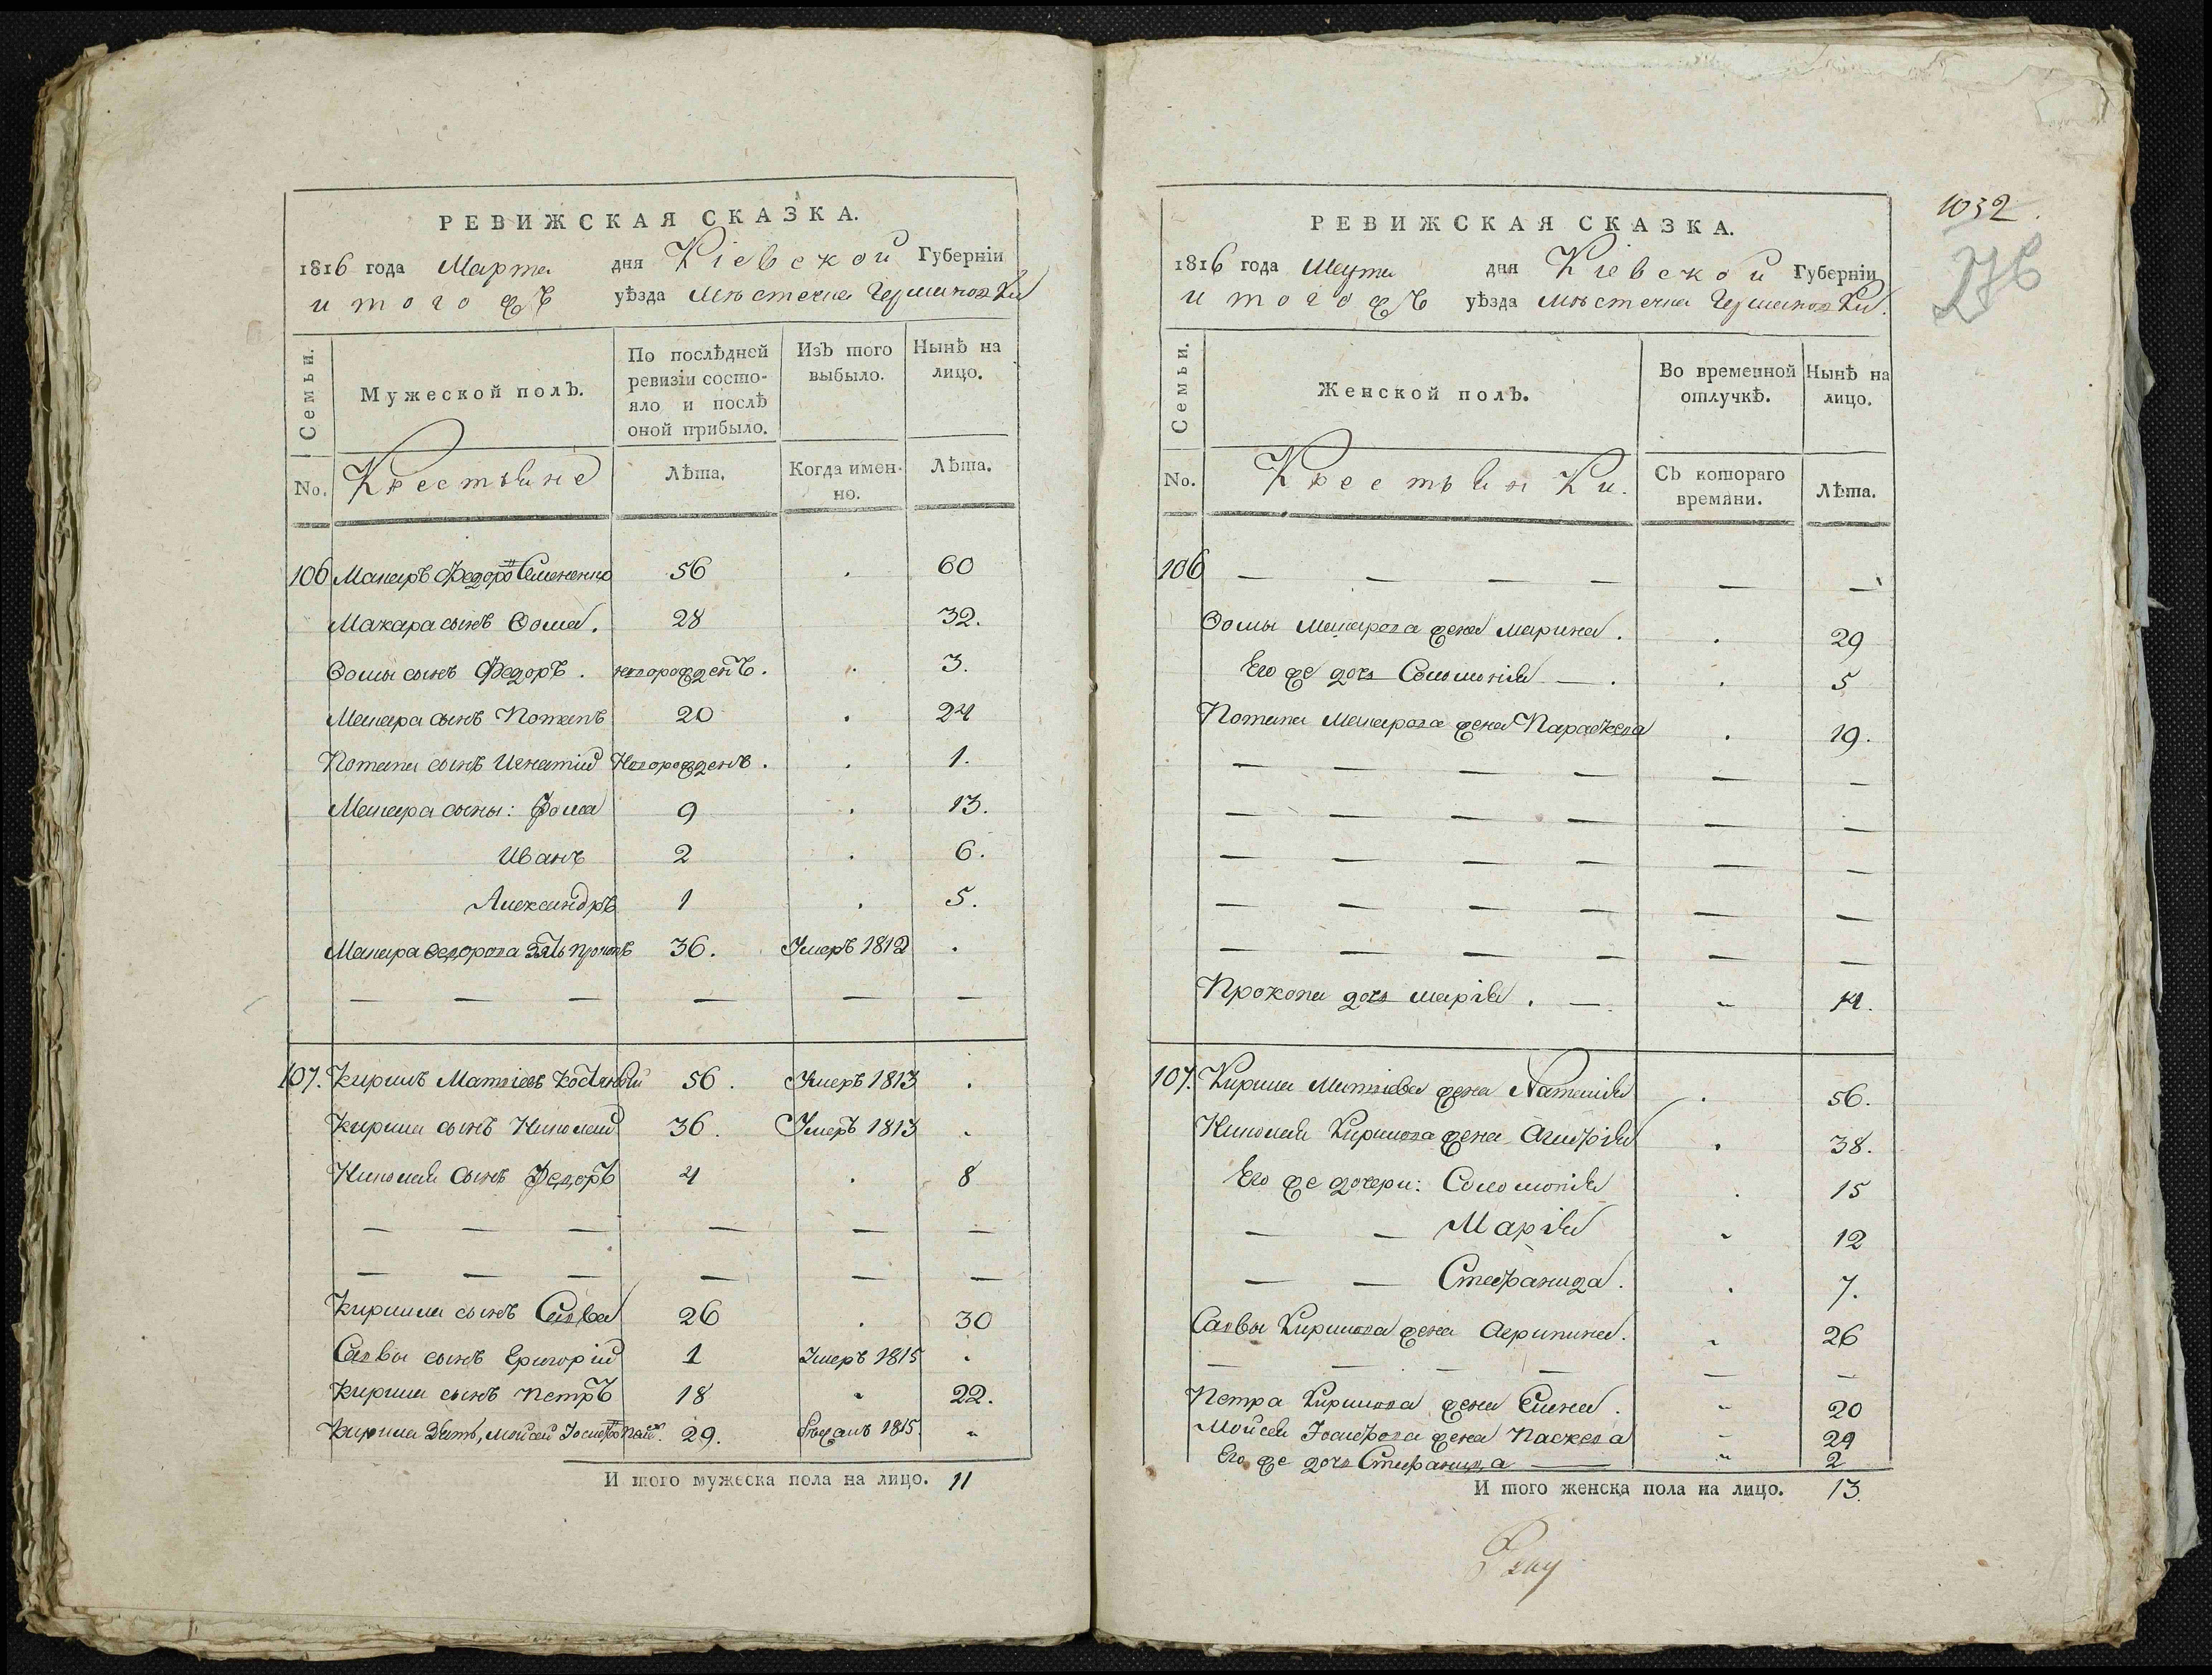 РЕВИЖСКАЯ СКАЗКА.
1816 года Марта дня Кіевской Губерніи
и того жъ уѣзда мѣстечка Германовки
Семьи. Мужеской полъ. По послѣдней ревизіи состояло и послѣ оной прибыло. Изъ того выбыло. Нынѣ на лицо.
No. Крестьяне Лѣта. Когда именно. Лѣта.
106 Макаръ Федоровъ Семененко 56 . 60
Макара сынъ Ѳома. 28 32.
Ѳомы сынъ Федоръ. новорожденъ. . 3.
Макара сынъ Потапъ 20 . 24
Потапа сынъ Игнатій Новорожденъ. . 1.
Макара сыны: Фома 9 . 13.
Иванъ 2 . 6.
Александръ 1 . 5.
Макара Федорова зять Прокопъ 36. Умеръ 1812 .
— — — — — —
107. Кирилъ Матвіевъ 56. Умеръ 1813 .
Кирила сынъ Николай 36. Умеръ 1813 .
Николая Сынъ Федоръ 4 . 8
— — — — — —
— — — — — —
Кирила сынъ Савва 26 . 30
Саввы сынъ Григорій 1 Умеръ 1815 .
Кирила сынъ Петръ 18 . 22.
Кирила Зять, Мойсей Іосифовъ 29. Бѣжалъ 1815. .
И того мужеска пола на лицо. 11
1032.
276
РЕВИЖСКАЯ СКАЗКА.
1816 года Марта дня Кіевской Губерніи
и того жъ уѣзда мѣстечка Германовки.
Семьи. Женской полъ. Во временной отлучкѣ. Нынѣ на лицо.
No. Крестьянки. Съ котораго времяни. Лѣта.
106 — — — — — —
Ѳомы Макарова жена Марина. . 29
Его же дочь Соломонія — . . 5
Потапа Макарова жена Параскева . 19.
— — — — — —
— — — — — —
— — — — — —
— — — — — —
— — — — — —
Прокопа дочь Марія. — 
107. Кирила Матвіева жена Наталія . 56.
Николая Кирилова жена Агафія . 38.
Его же дочери: Соломонія . 15
— — Марія . 12
— — Стефанида. . 7.
Саввы Кирилова жена Агрипина. . 26
— — — — — —
Петра Кирилова жена Елена. . 20
Мойсея Іосифова жена Паскева . 29
Его же дочь Стефанида — . 2
И того женска пола на лицо. 13.